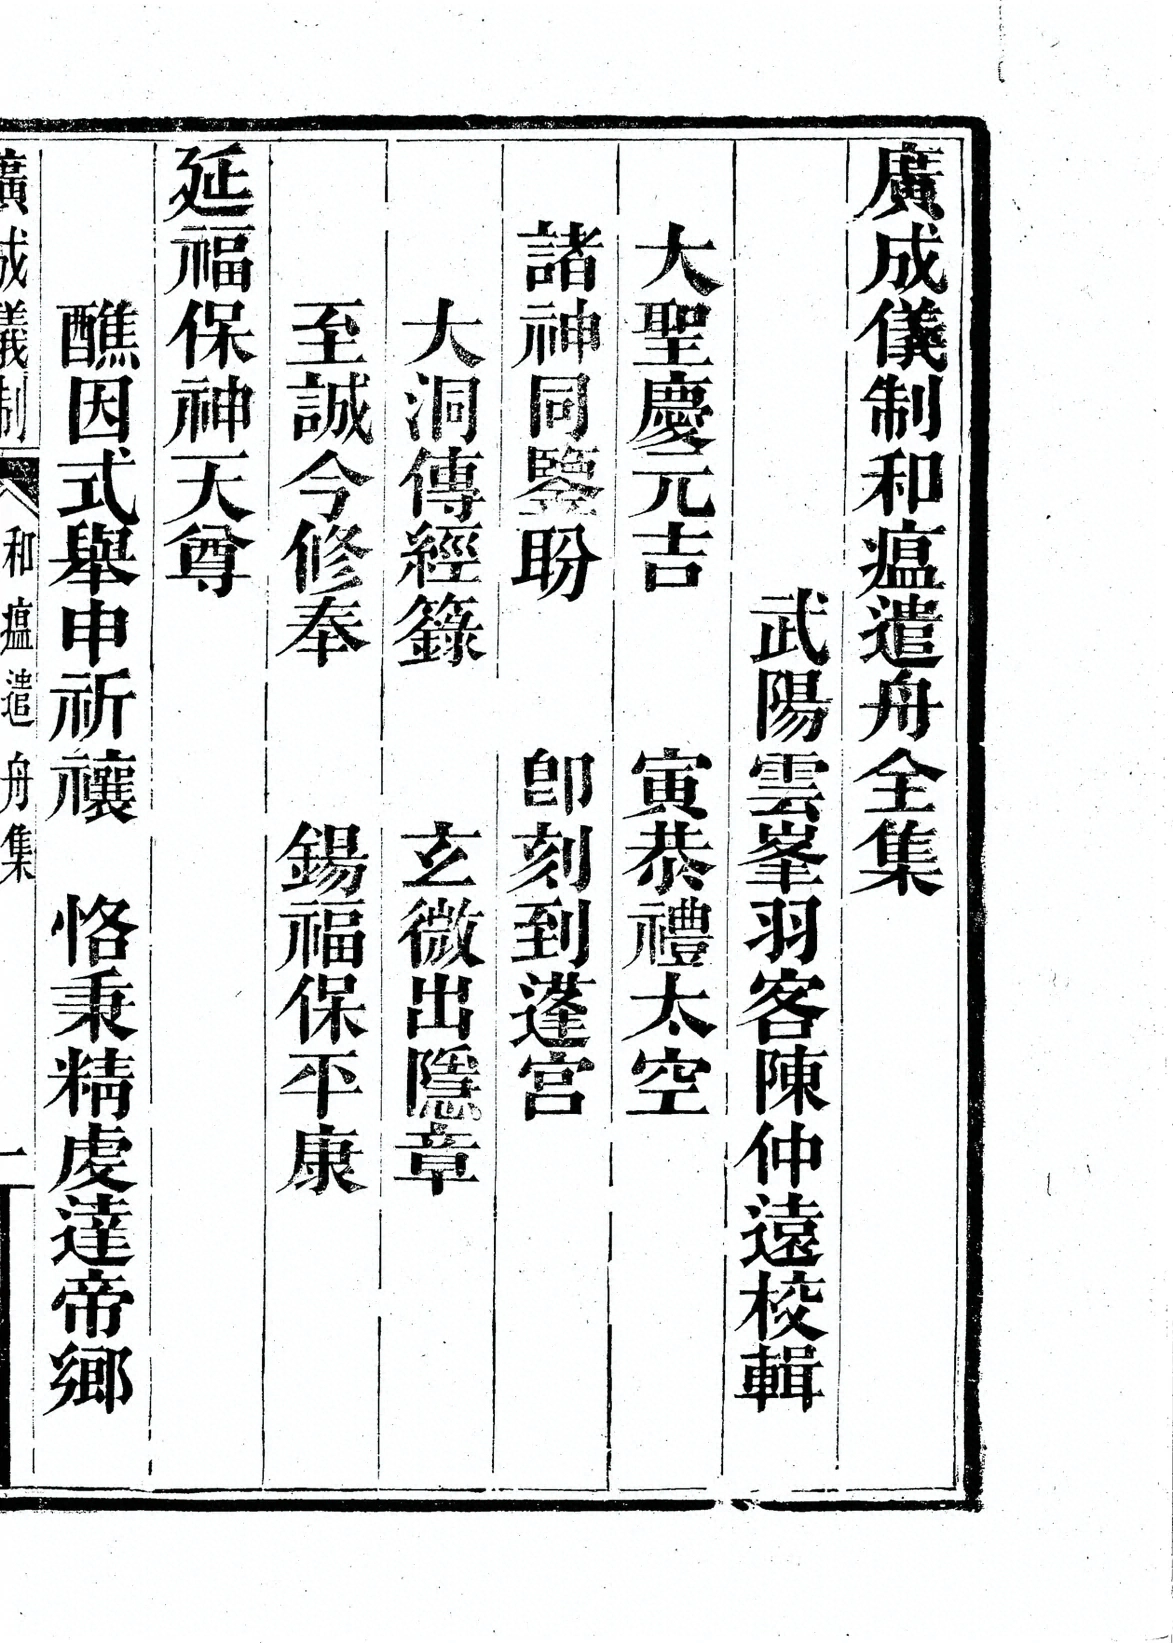 廣成儀制和瘟遣舟全集
武陽雲峯羽客陳仲遠校輯
大聖慶元吉　寅恭禮太空
諸神同鑒盼　卽刻到蓬宮
大洞傳經籙　玄微出隱章
至誠今修奉　錫福保平康
延福保神天尊
醮因式舉申祈禳　恪秉精虔達帝鄉
廣成儀制　和瘟遣舟集　一